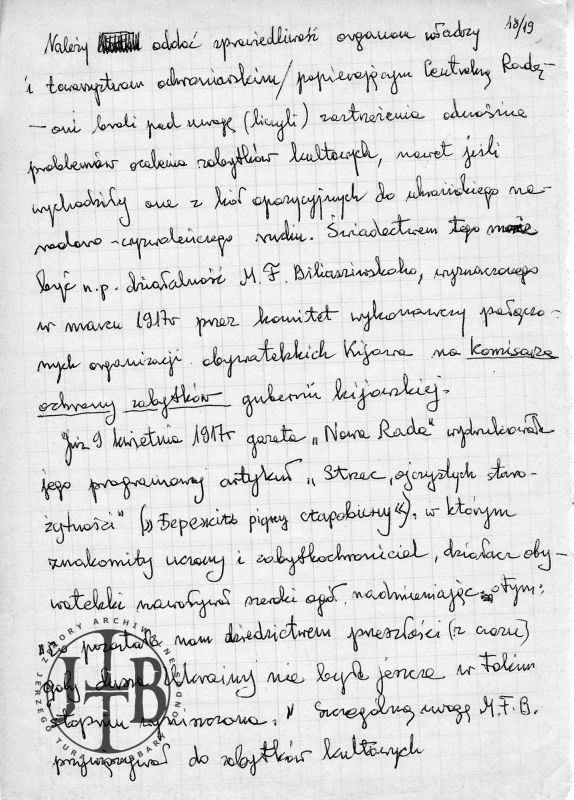 18/19
Należy oddać sprawiedliwość organom władzy
i towarzystwom ochroniarskim/popierającym Centralną Radę
— oni brali pod uwagę (liczyli) zastrzeżenia odnośnie
problemów ocalenia zabytków kultowych, nawet jeśli
wychodziły one z kół opozycyjnych do ukraińskiego na-
rodowo-wyzwoleńczego ruchu. Świadectwem tego może
być n.p. działalność M. F. Biliasziwskoho, wyznaczonego
w marcu 1917r przez komitet wykonawczy połączo-
nych organizacji obywatelskich Kijowa na komisarza
ochrony zabytków guberni kijowskiej.
Już 9 kwietnia 1917r gazeta „Nowa Rada" wydrukowała
jego programowy artykuł „Strzec ojczystych staro-
żytności" („Бережить рідну старовину"), w którym
znakomity uczony i zabytkochroniciel, działacz oby-
watelski nawoływał szeroki ogół nadmieniając o tym:
„Co pozostało nam dziedzictwem przeszłości (z czasu)
gdy dusza Ukrainy nie była jeszcze w takim
stopniu zniszczona." Szczególną uwagę M.F.B.
przywiązywał do zabytków kultowych
ZBIORY ARCHIWALNE
JERZEGO
TUR
BARBARY
JTB